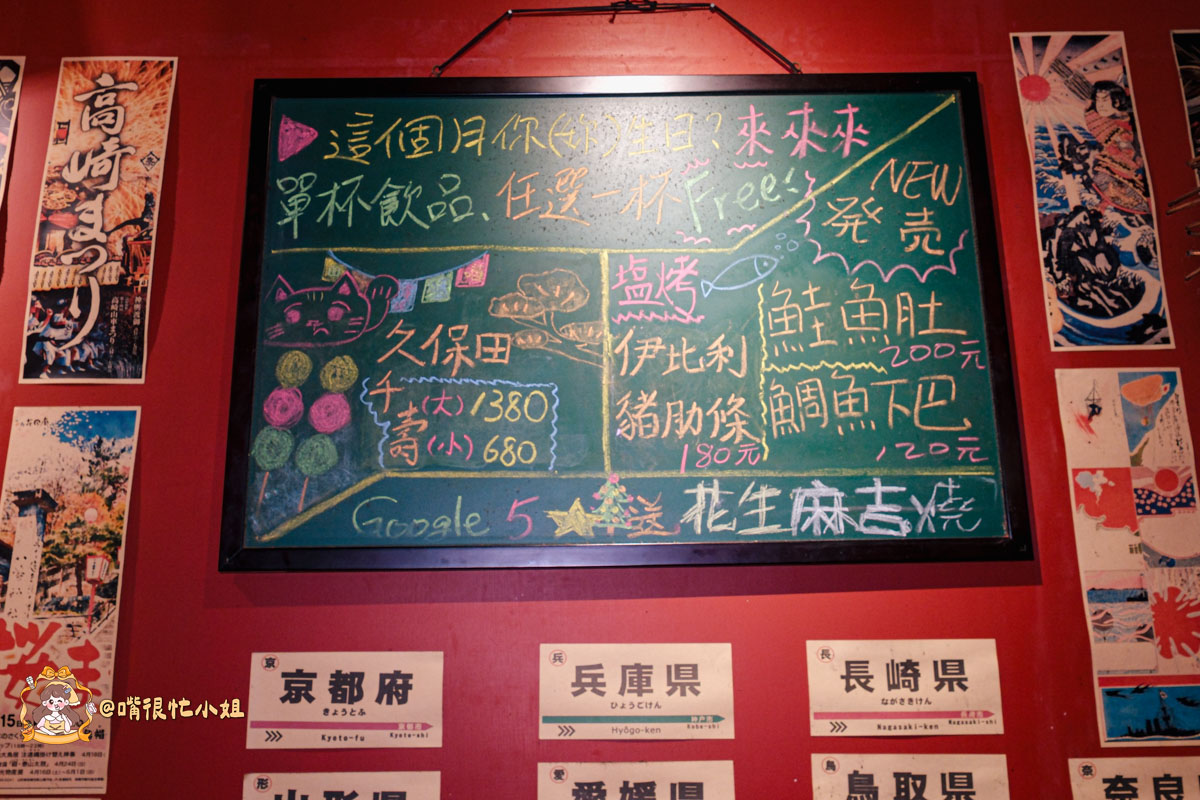 這個月你(妳)生日?來來來
單杯飲品、任選一杯Free!
NEW
発売
久保田
千壽
(大)1380
(小)680
塩烤
伊比利
豬肋條
180元
鮭魚肚
200元
鯛魚下巴
120元
Google 5 送 花生麻吉燒
高崎まつり
京
京都府
きょうとふ
Kyoto-fu
京都市
Kyoto-shi
兵
兵庫県
ひょうごけん
Hyōgo-ken
神戸市
Kobe-shi
長
長崎県
ながさきけん
Nagasaki-ken
長崎市
Nagasaki-shi
形
山形県
愛
愛媛県
鳥
鳥取県
奈
奈良
@嘴很忙小姐